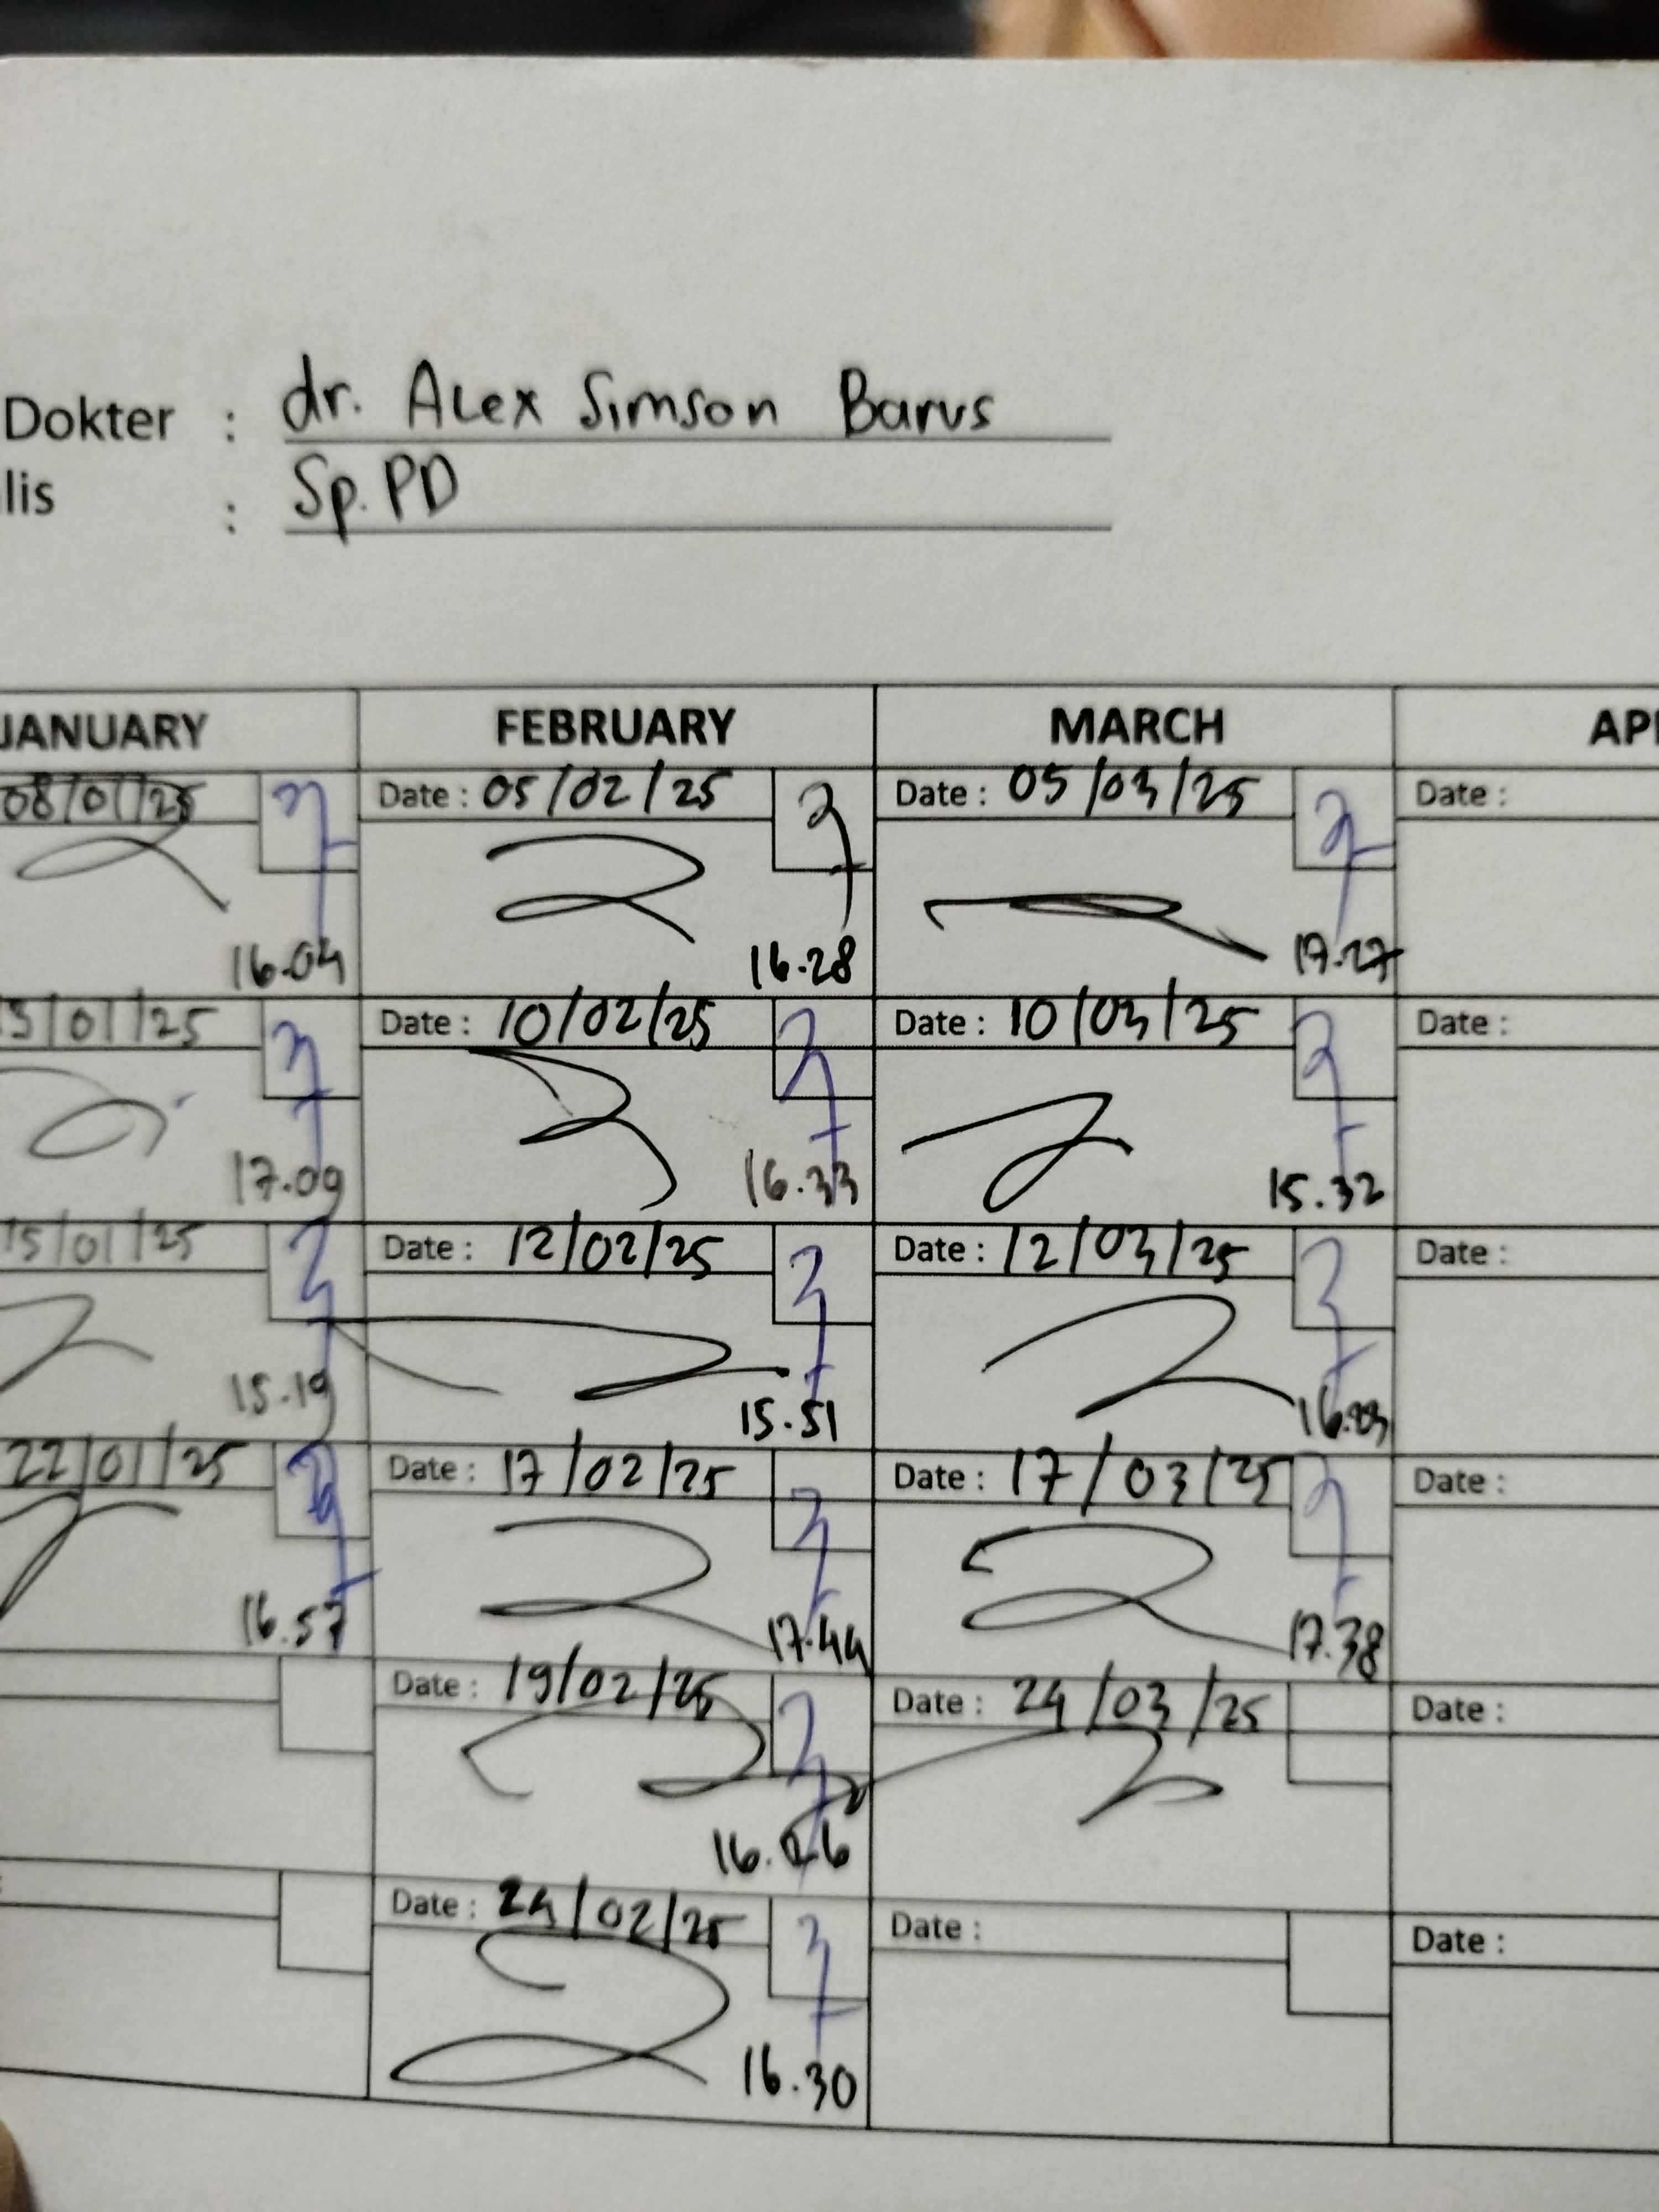 Dokter : dr. Alex Simson Barus
lis : Sp.PD
JANUARY FEBRUARY MARCH
08/01/25 Date : 05/02/25 Date : 05/03/25 Date :
16.04 16.28 17.27
/01/25 Date : 10/02/25 Date : 10/03/25 Date :
17.09 16.33 15.32
15/01/25 Date : 12/02/25 Date : 12/03/25 Date :
15.19 15.51
22/01/25 Date : 17/02/25 Date : 17/03/25 Date :
16.57 17.44 17.38
Date : 19/02/25 Date : 24/03/25 Date :
16.26
Date : 24/02/25 Date : Date :
16.30